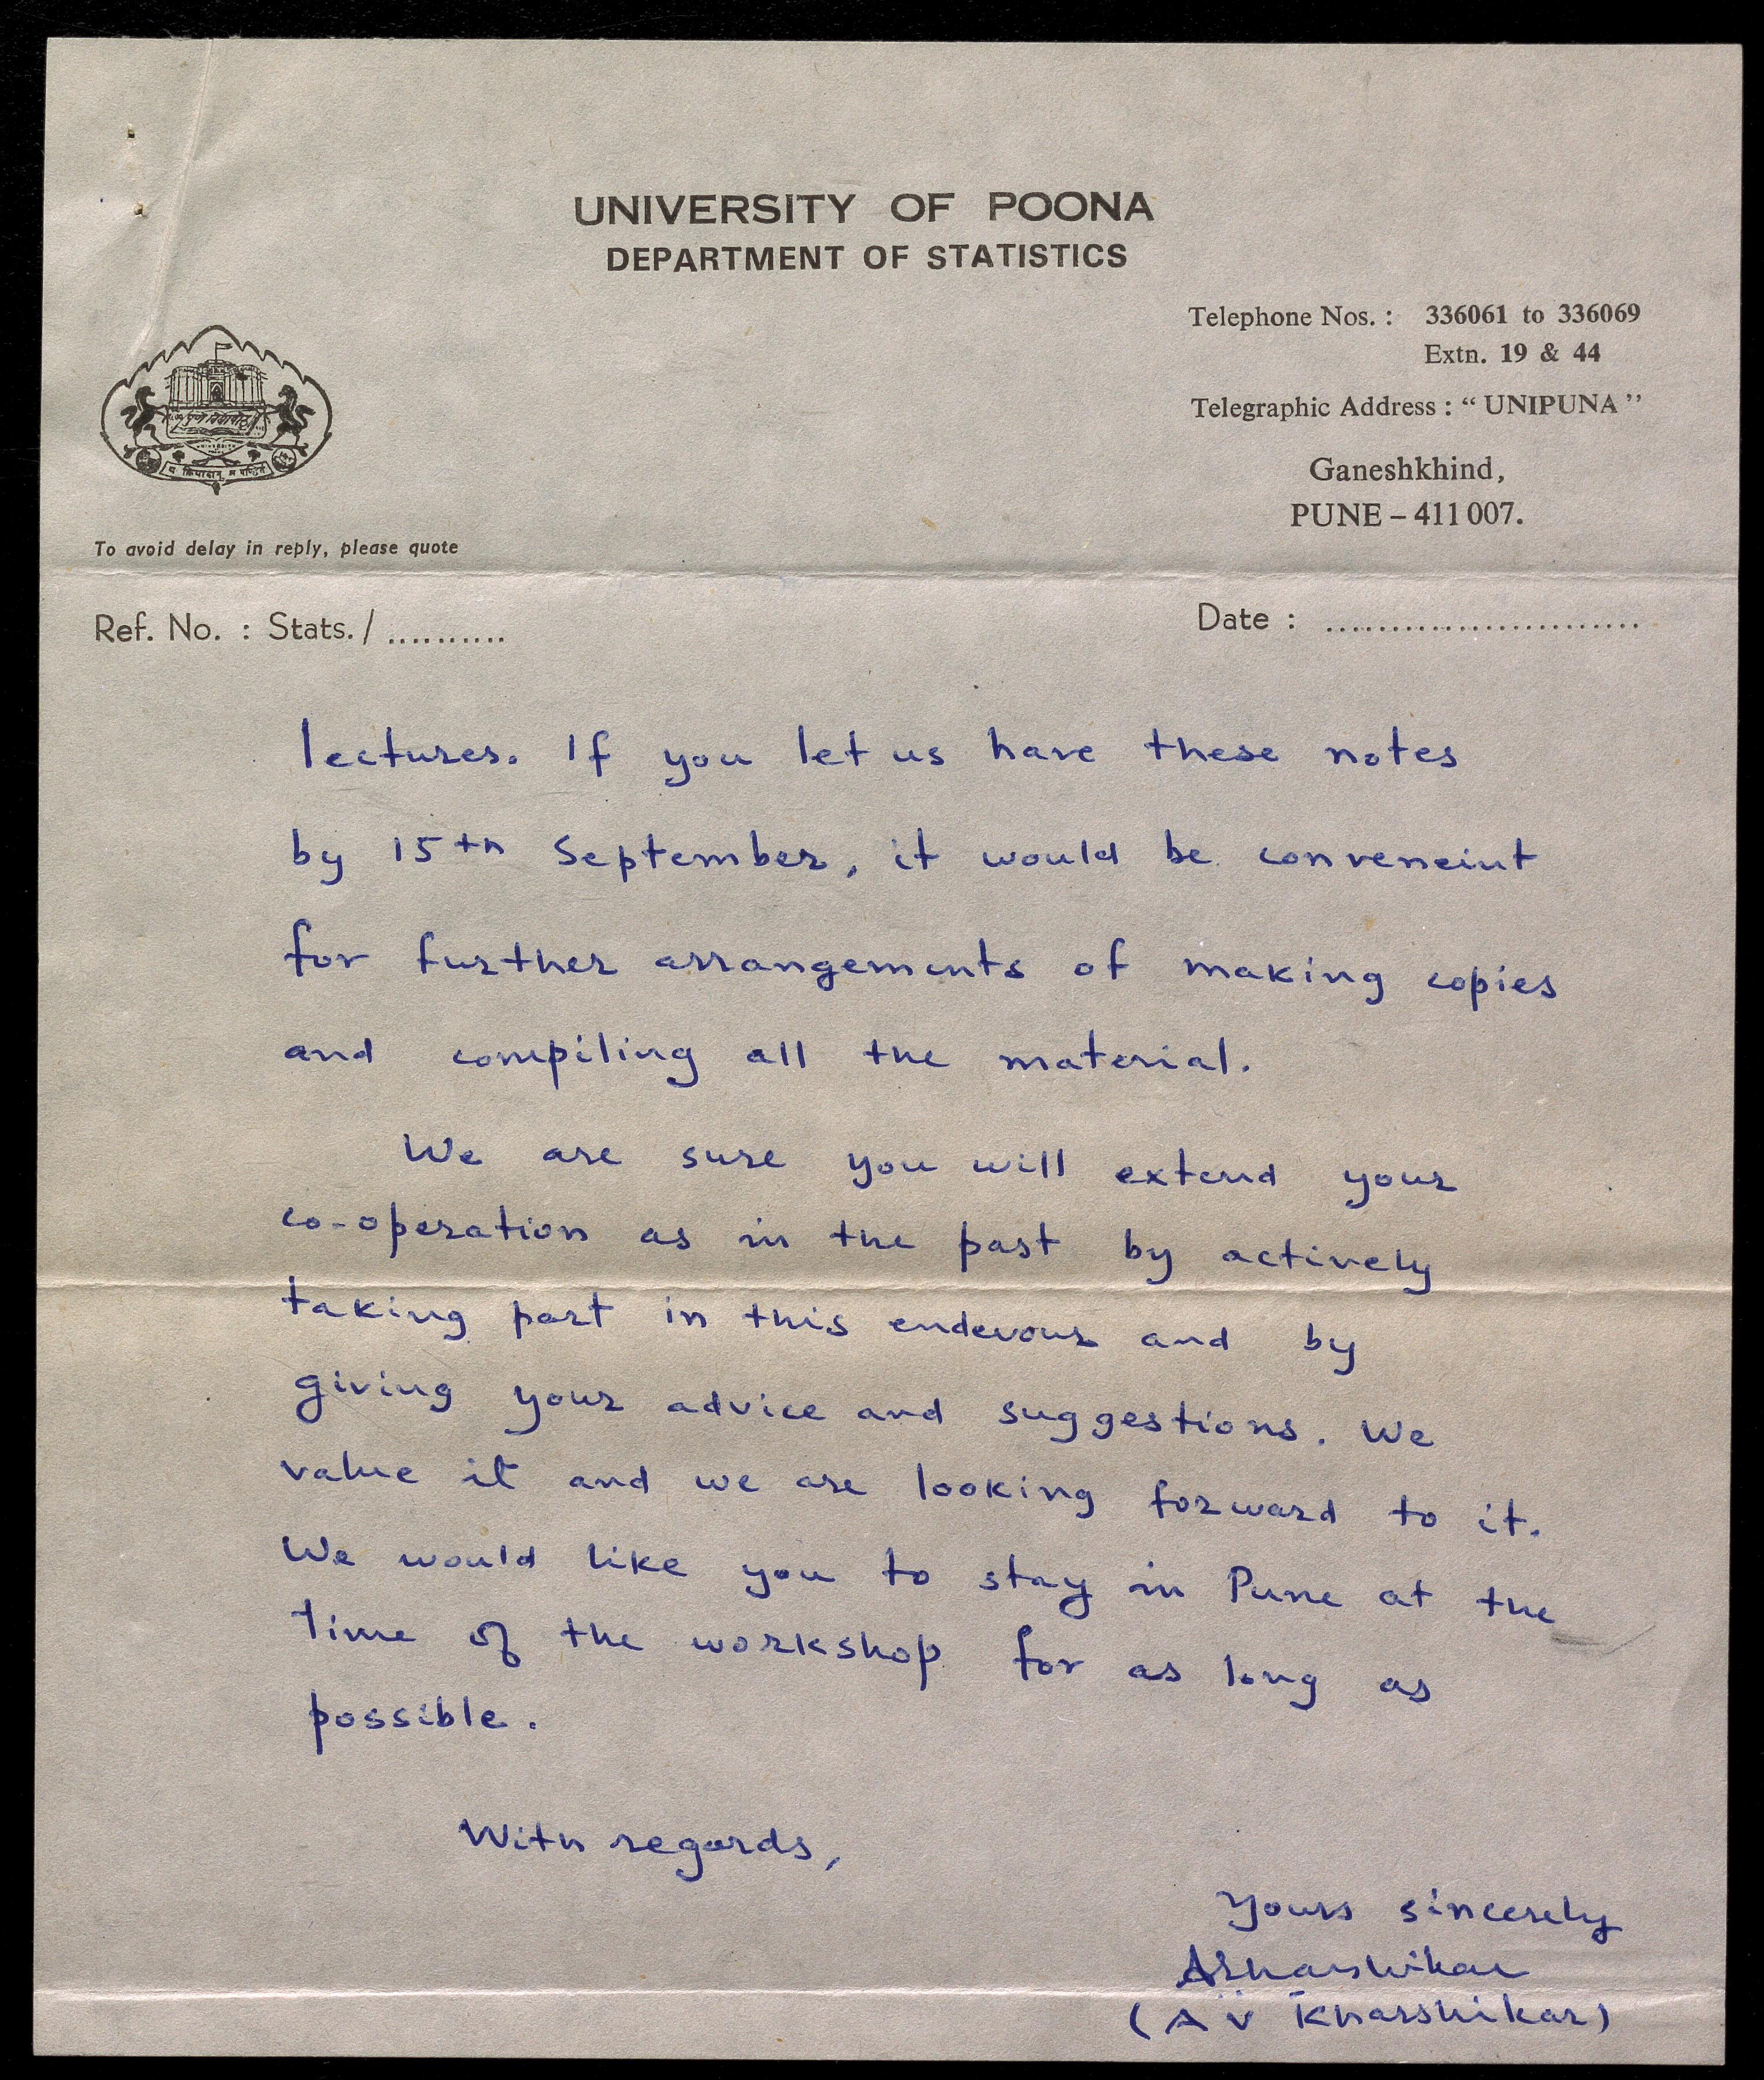 UNIVERSITY OF POONA
DEPARTMENT OF STATISTICS
Telephone Nos. : 336061 to 336069
Extn. 19 & 44
Telegraphic Address : “ UNIPUNA ”
Ganeshkhind,
PUNE – 411 007.
To avoid delay in reply, please quote
Ref. No. : Stats. / ..........
Date : ........................
lectures. If you let us have these notes
by 15th September, it would be conveneint
for further arrangements of making copies
and compiling all the material.
We are sure you will extend your
co-operation as in the past by actively
taking part in this endevour and by
giving your advice and suggestions. We
value it and we are looking forward to it.
We would like you to stay in Pune at the
time of the workshop for as long as
possible.
With regards,
Yours sincerely
(A V Kharshikar)